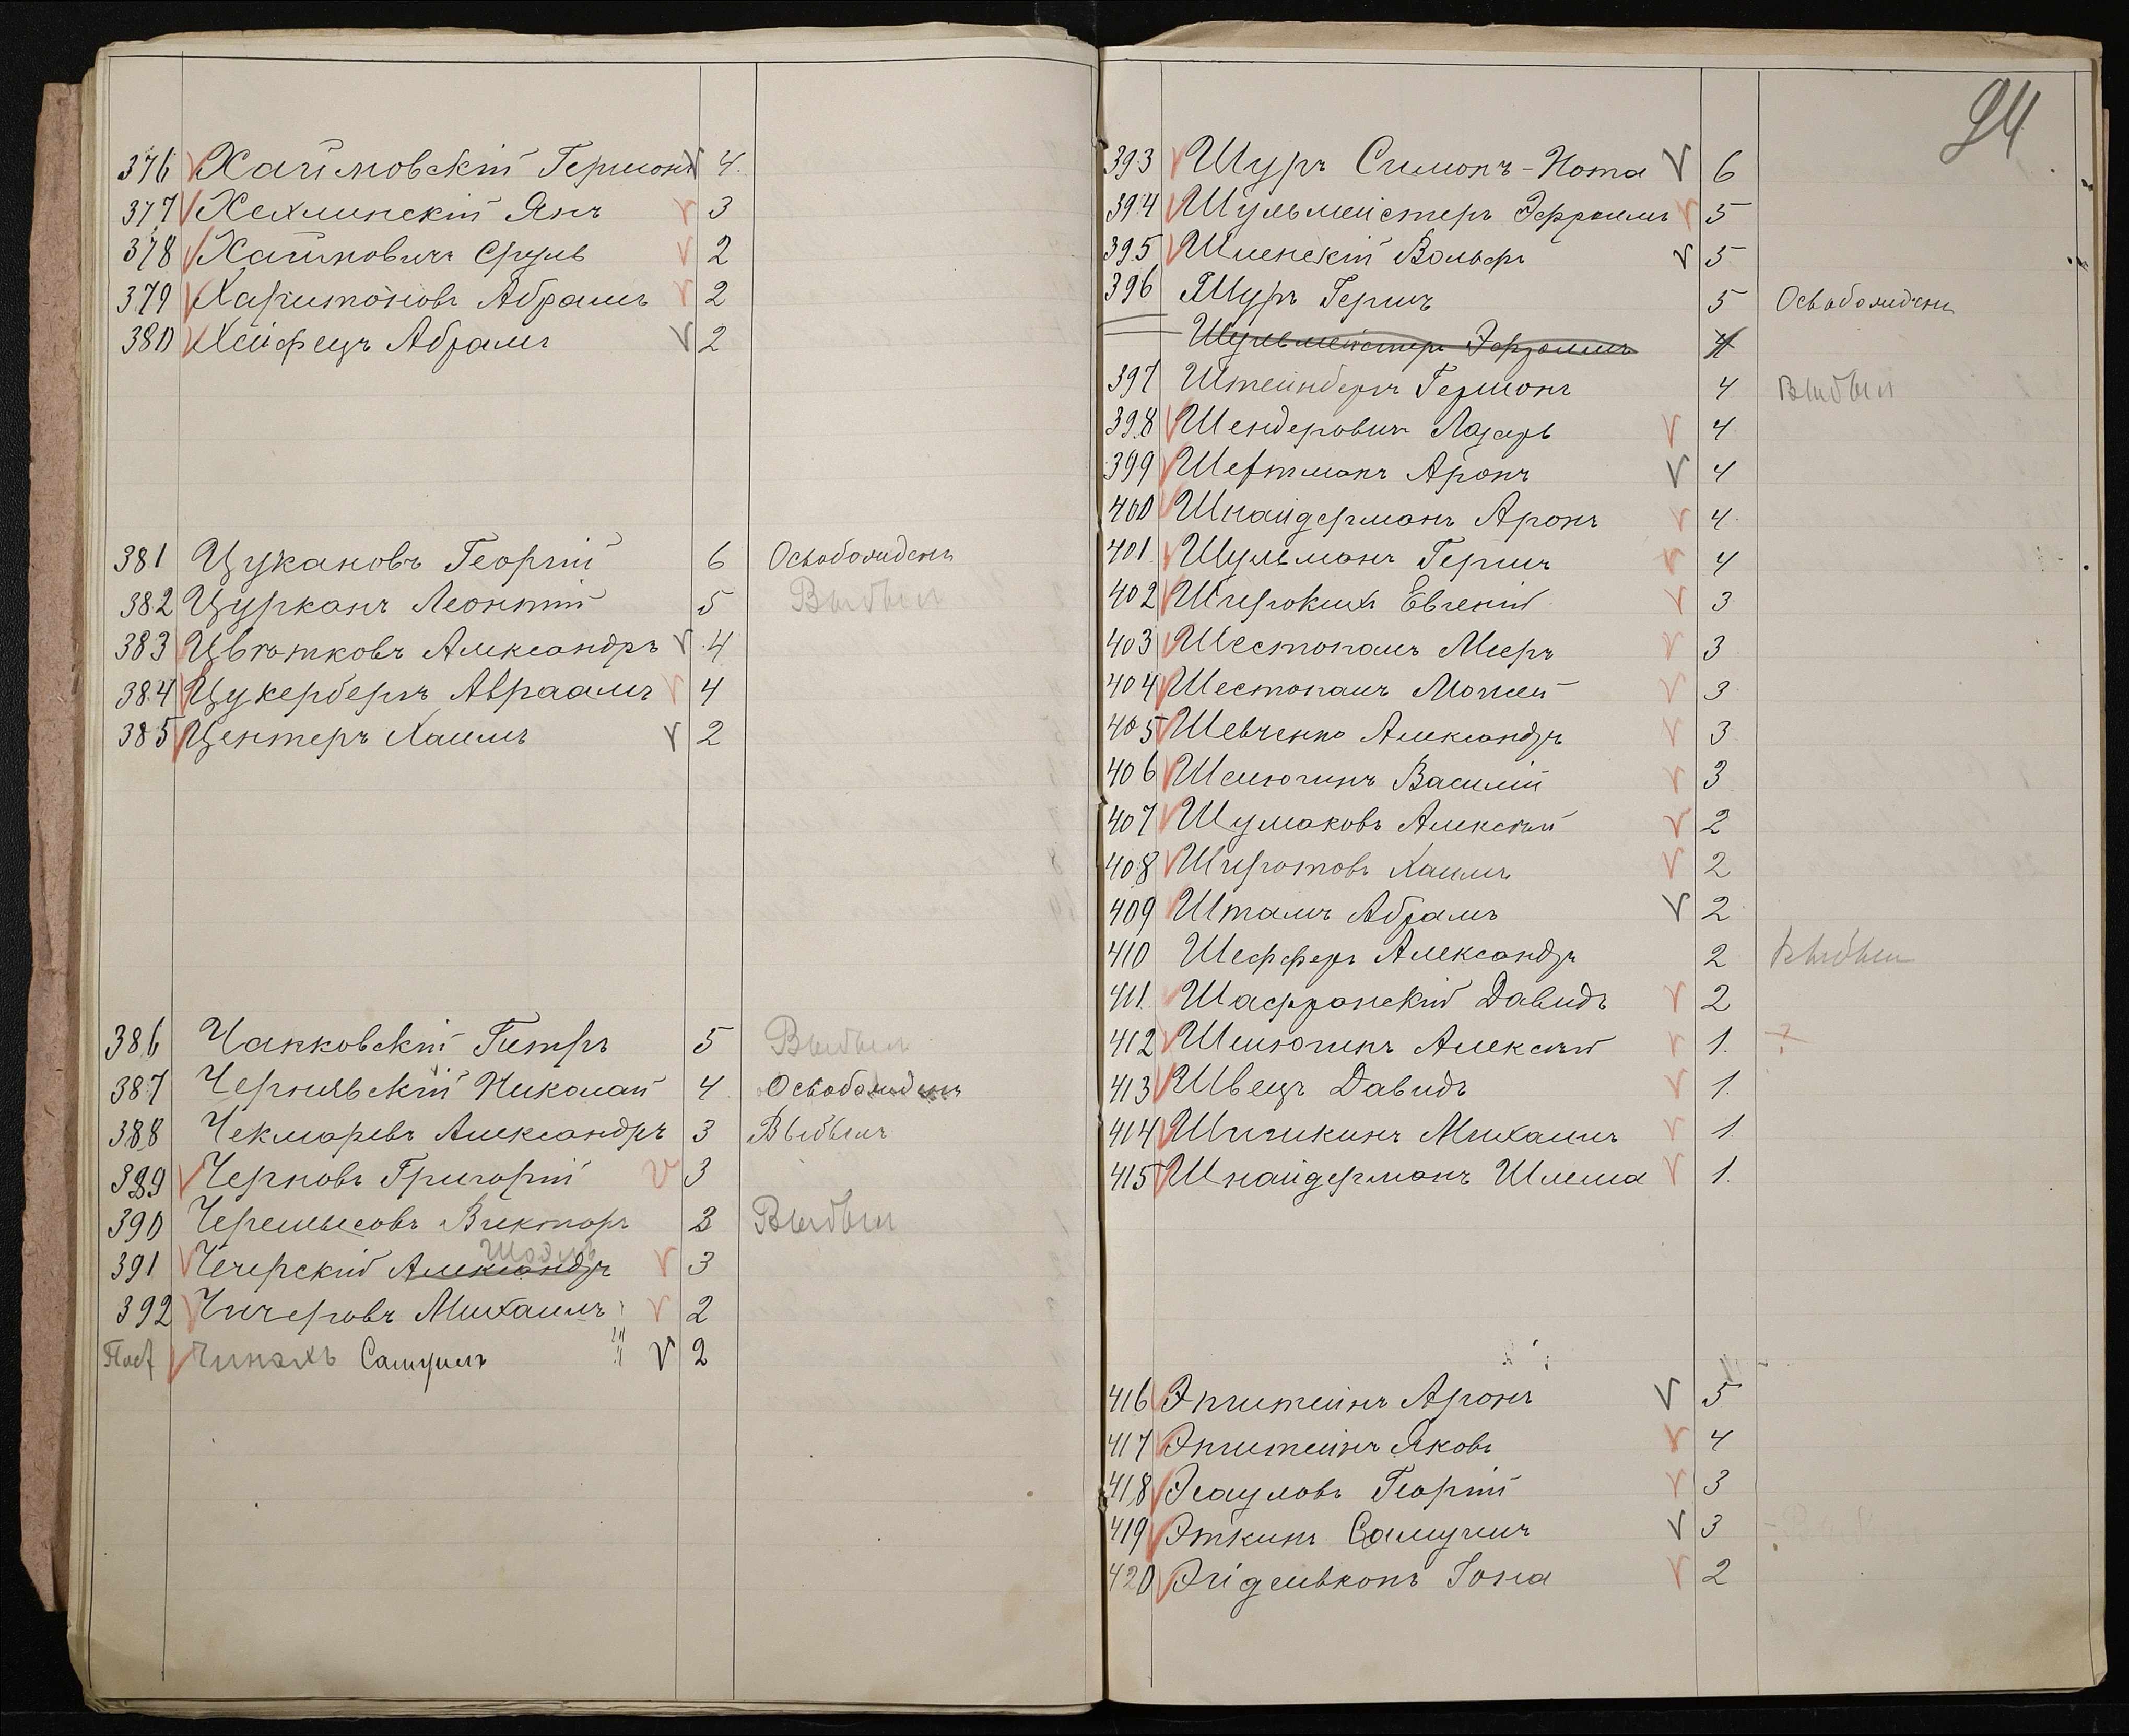 376 Хаймовскій Германъ 4.
377 Хехлинскій Янъ 3
378 Хаймовичъ Сруль 2
379 Харитоновъ Абрамъ 2
380 Хейфецъ Абрамъ 2
381 Цукановъ Георгій 6 Освобожденъ
382 Цурканъ Леонтій 5 Выбылъ
383 Цвѣтковъ Александръ 4
384 Цукербергъ Авраамъ 4
385 Центеръ Хаимъ 2
386 Чапковскій Петръ 5 Выбылъ
387 Чернявскій Николай 4 Освобожденъ
388 Чекмаревъ Александръ 3 Выбылъ
389 Черновъ Григорій 3
390 Черемысовъ Викторъ 3 Выбылъ
391 Чечерскій Александръ 3
392 Чичеровъ Михаилъ 2
Самуилъ 2
94
393 Шуръ Симонъ-Нота 6
394 Шульмейстеръ Эфроимъ 5
395 Шленскій Вольфъ 5
396 Шуръ Гершъ 5 Освобожденъ
Шульмейстеръ Эфроимъ 4
397 Штейнбергъ Германъ 4 Выбылъ
398 Шендеровичъ Лазарь 4
399 Шефтманъ Аронъ 4
400 Шнайдерманъ Аронъ 4
401 Шульманъ Гершъ 4
402 Широкихъ Евгеній 3
403 Шестопалъ Мееръ 3
404 Шестопалъ Мошей 3
405 Шевченко Александръ 3
406 Шелюгинъ Василій 3
407 Шумаковъ Алексѣй 2
408 Шировтовъ Хаимъ 2
409 Шталъ Абрамъ 2
410 Шефферъ Александръ 2 Выбылъ
411 Шафранскій Давидъ 2
412 Шелюгинъ Алексѣй 1.
413 Швецъ Давидъ 1.
414 Шишкинъ Михаилъ 1.
415 Шнайдерманъ Шлема 1.
416 Эпштейнъ Аронъ 5
417 Эпштейнъ Яковъ 4
418 Эсауловъ Георгій 3
419 Эткинъ Самуилъ 3
420 Эйдельконъ Іона 2